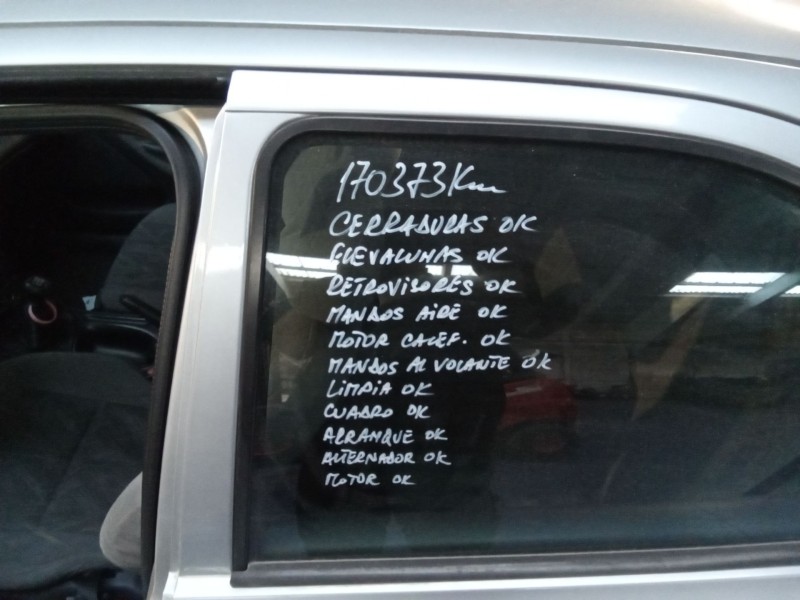 170373Km
CERRADURAS OK
ELEVALUNAS OK
RETROVISORES OK
MANDOS AIRE OK
MOTOR CALEF. OK
MANDOS AL VOLANTE OK
LIMPIA OK
CUADRO OK
ARRANQUE OK
ALTERNADOR OK
MOTOR OK